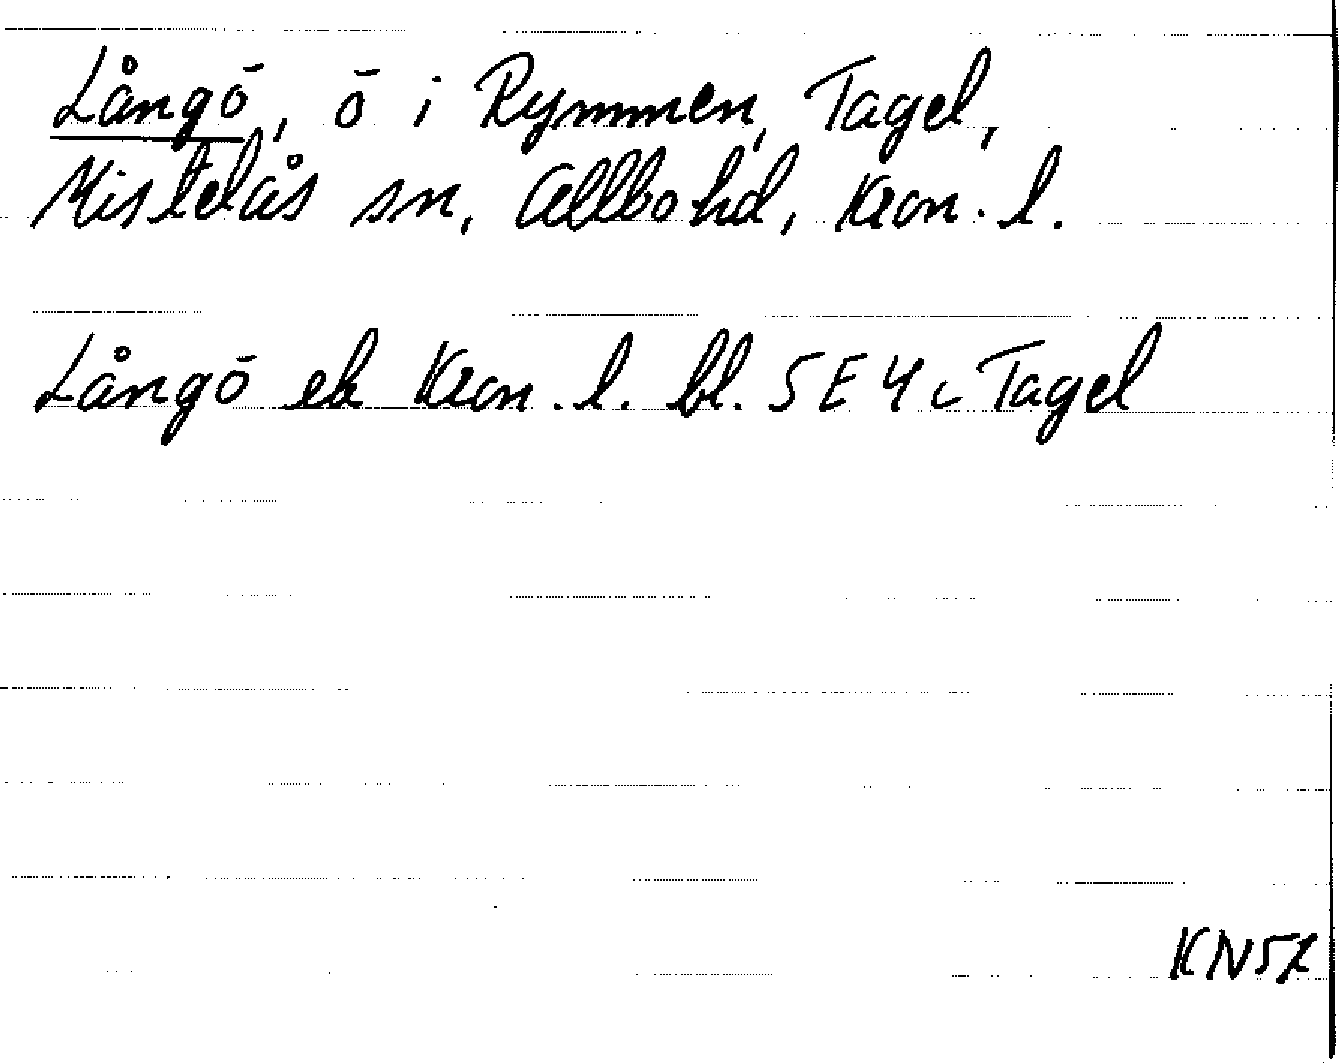 Långö, ö i Rymmen, Tagel,
Mistelås sn, Allbo hd, Kron. l.
Långö ek Kron. l. bl. 5E4c Tagel